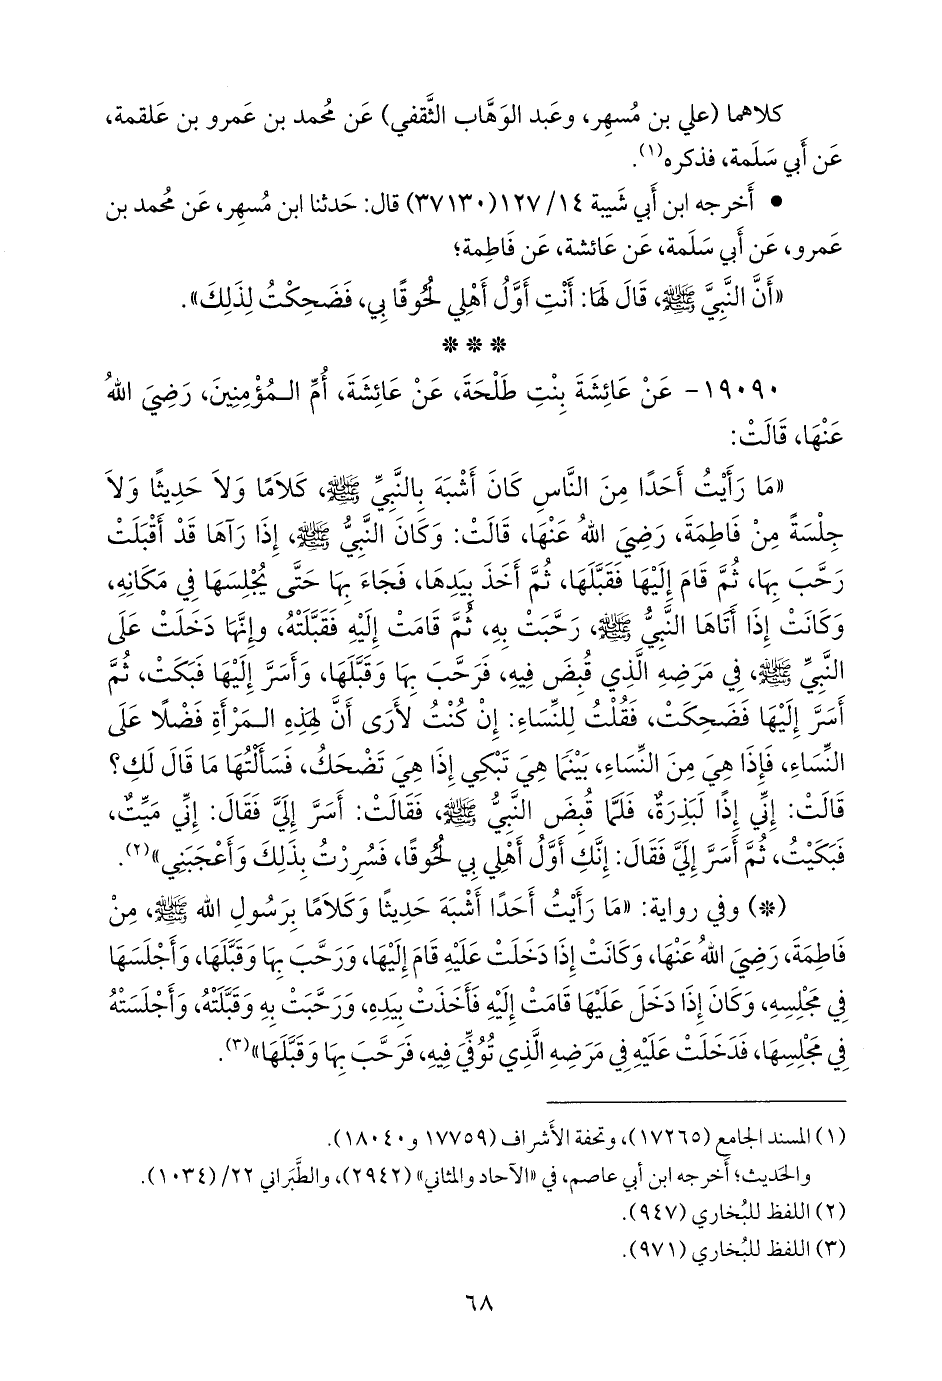 كلاهما (علي بن مُسهِر، وعَبد الوَهَّاب الثَّقفي) عَن مُحمد بن عَمرو بن عَلقمة،
عَن أَبي سَلَمة، فذكره(١).
• أَخرجه ابن أَبي شَيبة ١٤/ ١٢٧(٣٧١٣٠) قال: حَدثنا ابن مُسهِر، عَن مُحمد بن
عَمرو، عَن أَبي سَلَمة، عَن عَائشة، عَن فَاطِمة؛
«أَنَّ النَّبِيَّ ﷺ، قَالَ لَهَا: أَنْتِ أَوَّلُ أَهْلِي لُحُوقًا بِي، فَضَحِكْتُ لِذَلِكَ».
* * *
١٩٠٩٠- عَنْ عَائِشَةَ بِنْتِ طَلْحَةَ، عَنْ عَائِشَةَ، أُمِّ الـمُؤْمِنِينَ، رَضِيَ اللهُ
عَنْهَا، قَالَتْ:
«مَا رَأَيْتُ أَحَدًا مِنَ النَّاسِ كَانَ أَشْبَهَ بِالنَّبِيِّ ﷺ، كَلاَمًا وَلاَ حَدِيثًا وَلاَ
جِلْسَةً مِنْ فَاطِمَةَ، رَضِيَ اللهُ عَنْهَا، قَالَتْ: وَكَانَ النَّبِيُّ ﷺ، إِذَا رَآهَا قَدْ أَقْبَلَتْ
رَحَّبَ بِهَا، ثُمَّ قَامَ إِلَيْهَا فَقَبَّلَهَا، ثُمَّ أَخَذَ بِيَدِهَا، فَجَاءَ بِهَا حَتَّى يُجْلِسَهَا فِي مَكَانِهِ،
وَكَانَتْ إِذَا أَتَاهَا النَّبِيُّ ﷺ، رَحَّبَتْ بِهِ، ثُمَّ قَامَتْ إِلَيْهِ فَقَبَّلَتْهُ، وإِنَّهَا دَخَلَتْ عَلَى
النَّبِيِّ ﷺ، فِي مَرَضِهِ الَّذِي قُبِضَ فِيهِ، فَرَحَّبَ بِهَا وَقَبَّلَهَا، وَأَسَرَّ إِلَيْهَا فَبَكَتْ، ثُمَّ
أَسَرَّ إِلَيْهَا فَضَحِكَتْ، فَقُلْتُ لِلنِّسَاءِ: إِنْ كُنْتُ لأَرَى أَنَّ لِهَذِهِ الـمَرْأَةِ فَضْلًا عَلَى
النِّسَاءِ، فَإِذَا هِيَ مِنَ النِّسَاءِ، بَيْنَمَا هِيَ تَبْكِي إِذَا هِيَ تَضْحَكُ، فَسَأَلْتُهَا مَا قَالَ لَكِ؟
قَالَتْ: إِنِّي إِذًا لَبَذِرَةٌ، فَلَمَّا قُبِضَ النَّبِيُّ ﷺ، فَقَالَتْ: أَسَرَّ إِلَيَّ فَقَالَ: إِنِّي مَيِّتٌ،
فَبَكَيْتُ، ثُمَّ أَسَرَّ إِلَيَّ فَقَالَ: إِنَّكِ أَوَّلُ أَهْلِي بِي لُحُوقًا، فَسُرِرْتُ بِذَلِكَ وَأَعْجَبَنِي»(٢).
(*) وفي رواية: «مَا رَأَيْتُ أَحَدًا أَشْبَهَ حَدِيثًا وَكَلاَمًا بِرَسُولِ الله ﷺ، مِنْ
فَاطِمَةَ، رَضِيَ اللهُ عَنْهَا، وَكَانَتْ إِذَا دَخَلَتْ عَلَيْهِ قَامَ إِلَيْهَا، وَرَحَّبَ بِهَا وَقَبَّلَهَا، وَأَجْلَسَهَا
فِي مَجْلِسِهِ، وَكَانَ إِذَا دَخَلَ عَلَيْهَا قَامَتْ إِلَيْهِ فَأَخَذَتْ بِيَدِهِ، وَرَحَّبَتْ بِهِ وَقَبَّلَتْهُ، وَأَجْلَسَتْهُ
فِي مَجْلِسِهَا، فَدَخَلَتْ عَلَيْهِ فِي مَرَضِهِ الَّذِي تُوُفِّيَ فِيهِ، فَرَحَّبَ بِهَا وَقَبَّلَهَا»(٣).
(١) المسند الجامع (١٧٢٦٥)، وتحفة الأَشراف (١٧٧٥٩ و١٨٠٤٠).
والحَديث؛ أَخرجه ابن أَبي عاصم، في «الآحاد والمثاني» (٢٩٤٢)، والطَّبَراني ٢٢/ (١٠٣٤).
(٢) اللفظ للبُخاري (٩٤٧).
(٣) اللفظ للبُخاري (٩٧١).
٦٨